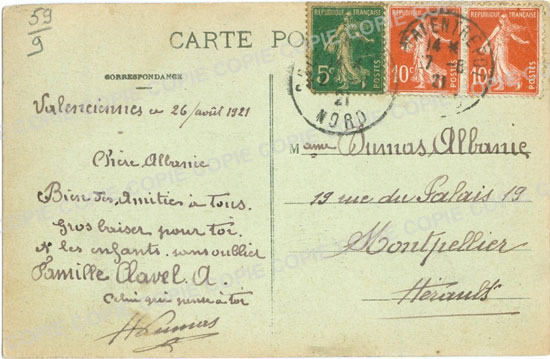 59
9
CARTE PO
RÉPUBLIQUE FRANÇAISE
5c
POSTES
RÉPUBLIQUE FRANÇAISE
10c
POSTES
RÉPUBLIQUE FRANÇAISE
10c
POSTES
21
NORD
21
CORRESPONDANCE
Valenciennes le 26/août 1921
Chère Albanie
Bien des Amitiés à tous.
Gros baiser pour toi
& les enfants, sans oublier
Famille Clavel. A
Celui qui pense à toi
HDumas
Mame Dumas Albanie
19 rue du Palais 19
Montpellier
Hérault
COPIE COPIE COPIE